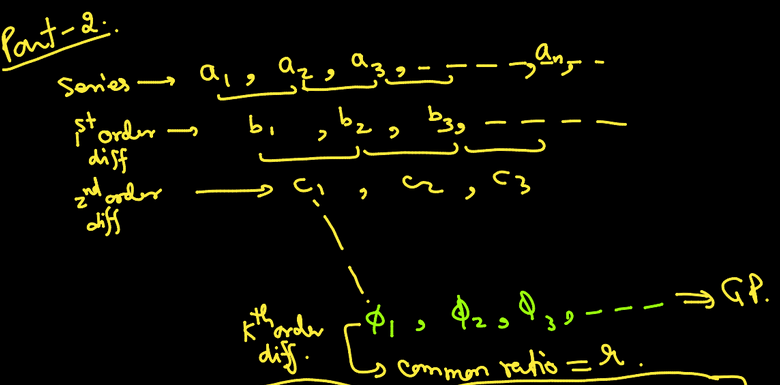 Part-2:.
Series → a₁, a₂, a₃, - - - - -, aₙ, - -
1st order diff → b₁, b₂, b₃, - - - - -
2nd order diff → c₁, c₂, c₃
Kth order diff. ϕ₁, ϕ₂, ϕ₃, - - - ⇒ GP.
↳ common ratio = r.